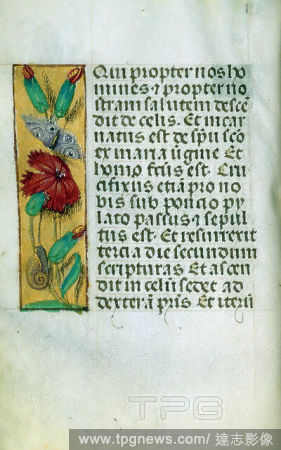 Qui propter nos ho
mines ⁊ propter no
stram salutem desce͂
dit de celis. Et incar
natus est de sp̃u sc̃o
ex maria ũgine Et
homo fc̃us est. Cru
cifixus etiã pro no
bis sub poncio py
lato passus ⁊ sepul
tus est. Et resurrexit
tercia die secundum
scripturas Et ascen
dit in celũ sedet ad
dexterã p̃ris Et iterũ
TPG
www.tpgnews.com/ 達志影像